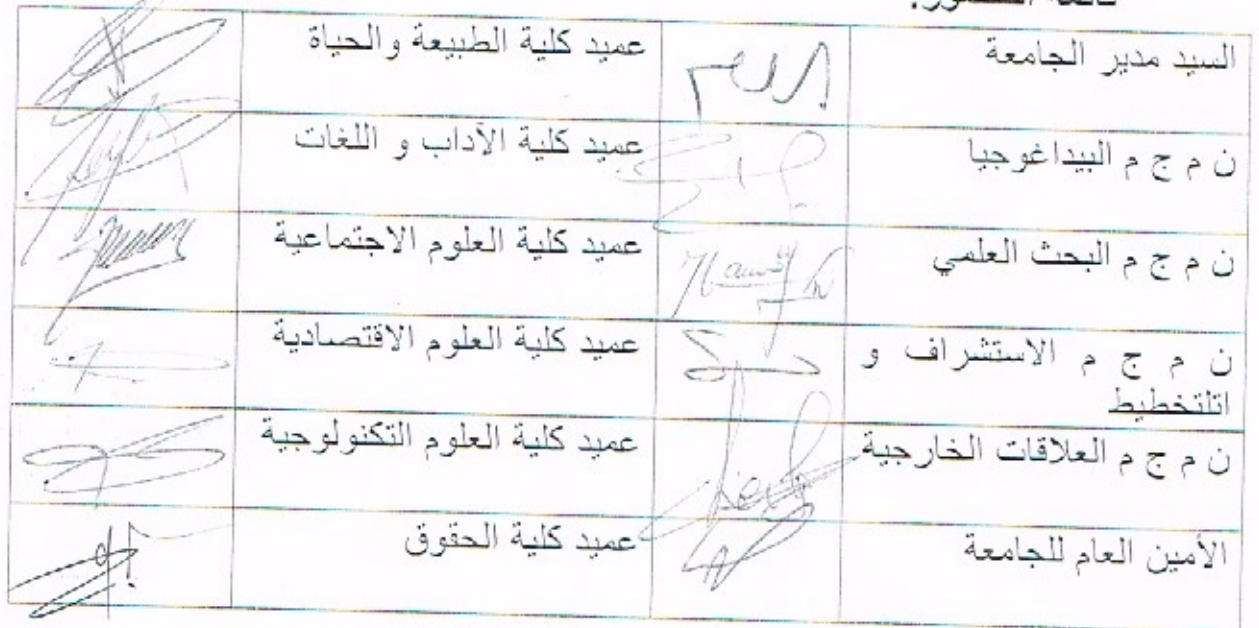 السيد مدير الجامعة
عميد كلية الطبيعة والحياة
ن م ج م البيداغوجيا
عميد كلية الآداب و اللغات
ن م ج م البحث العلمي
عميد كلية العلوم الاجتماعية
ن م ج م الاستشراف و
اتلتخطيط
عميد كلية العلوم الاقتصادية
ن م ج م العلاقات الخارجية
عميد كلية العلوم التكنولوجية
الأمين العام للجامعة
عميد كلية الحقوق